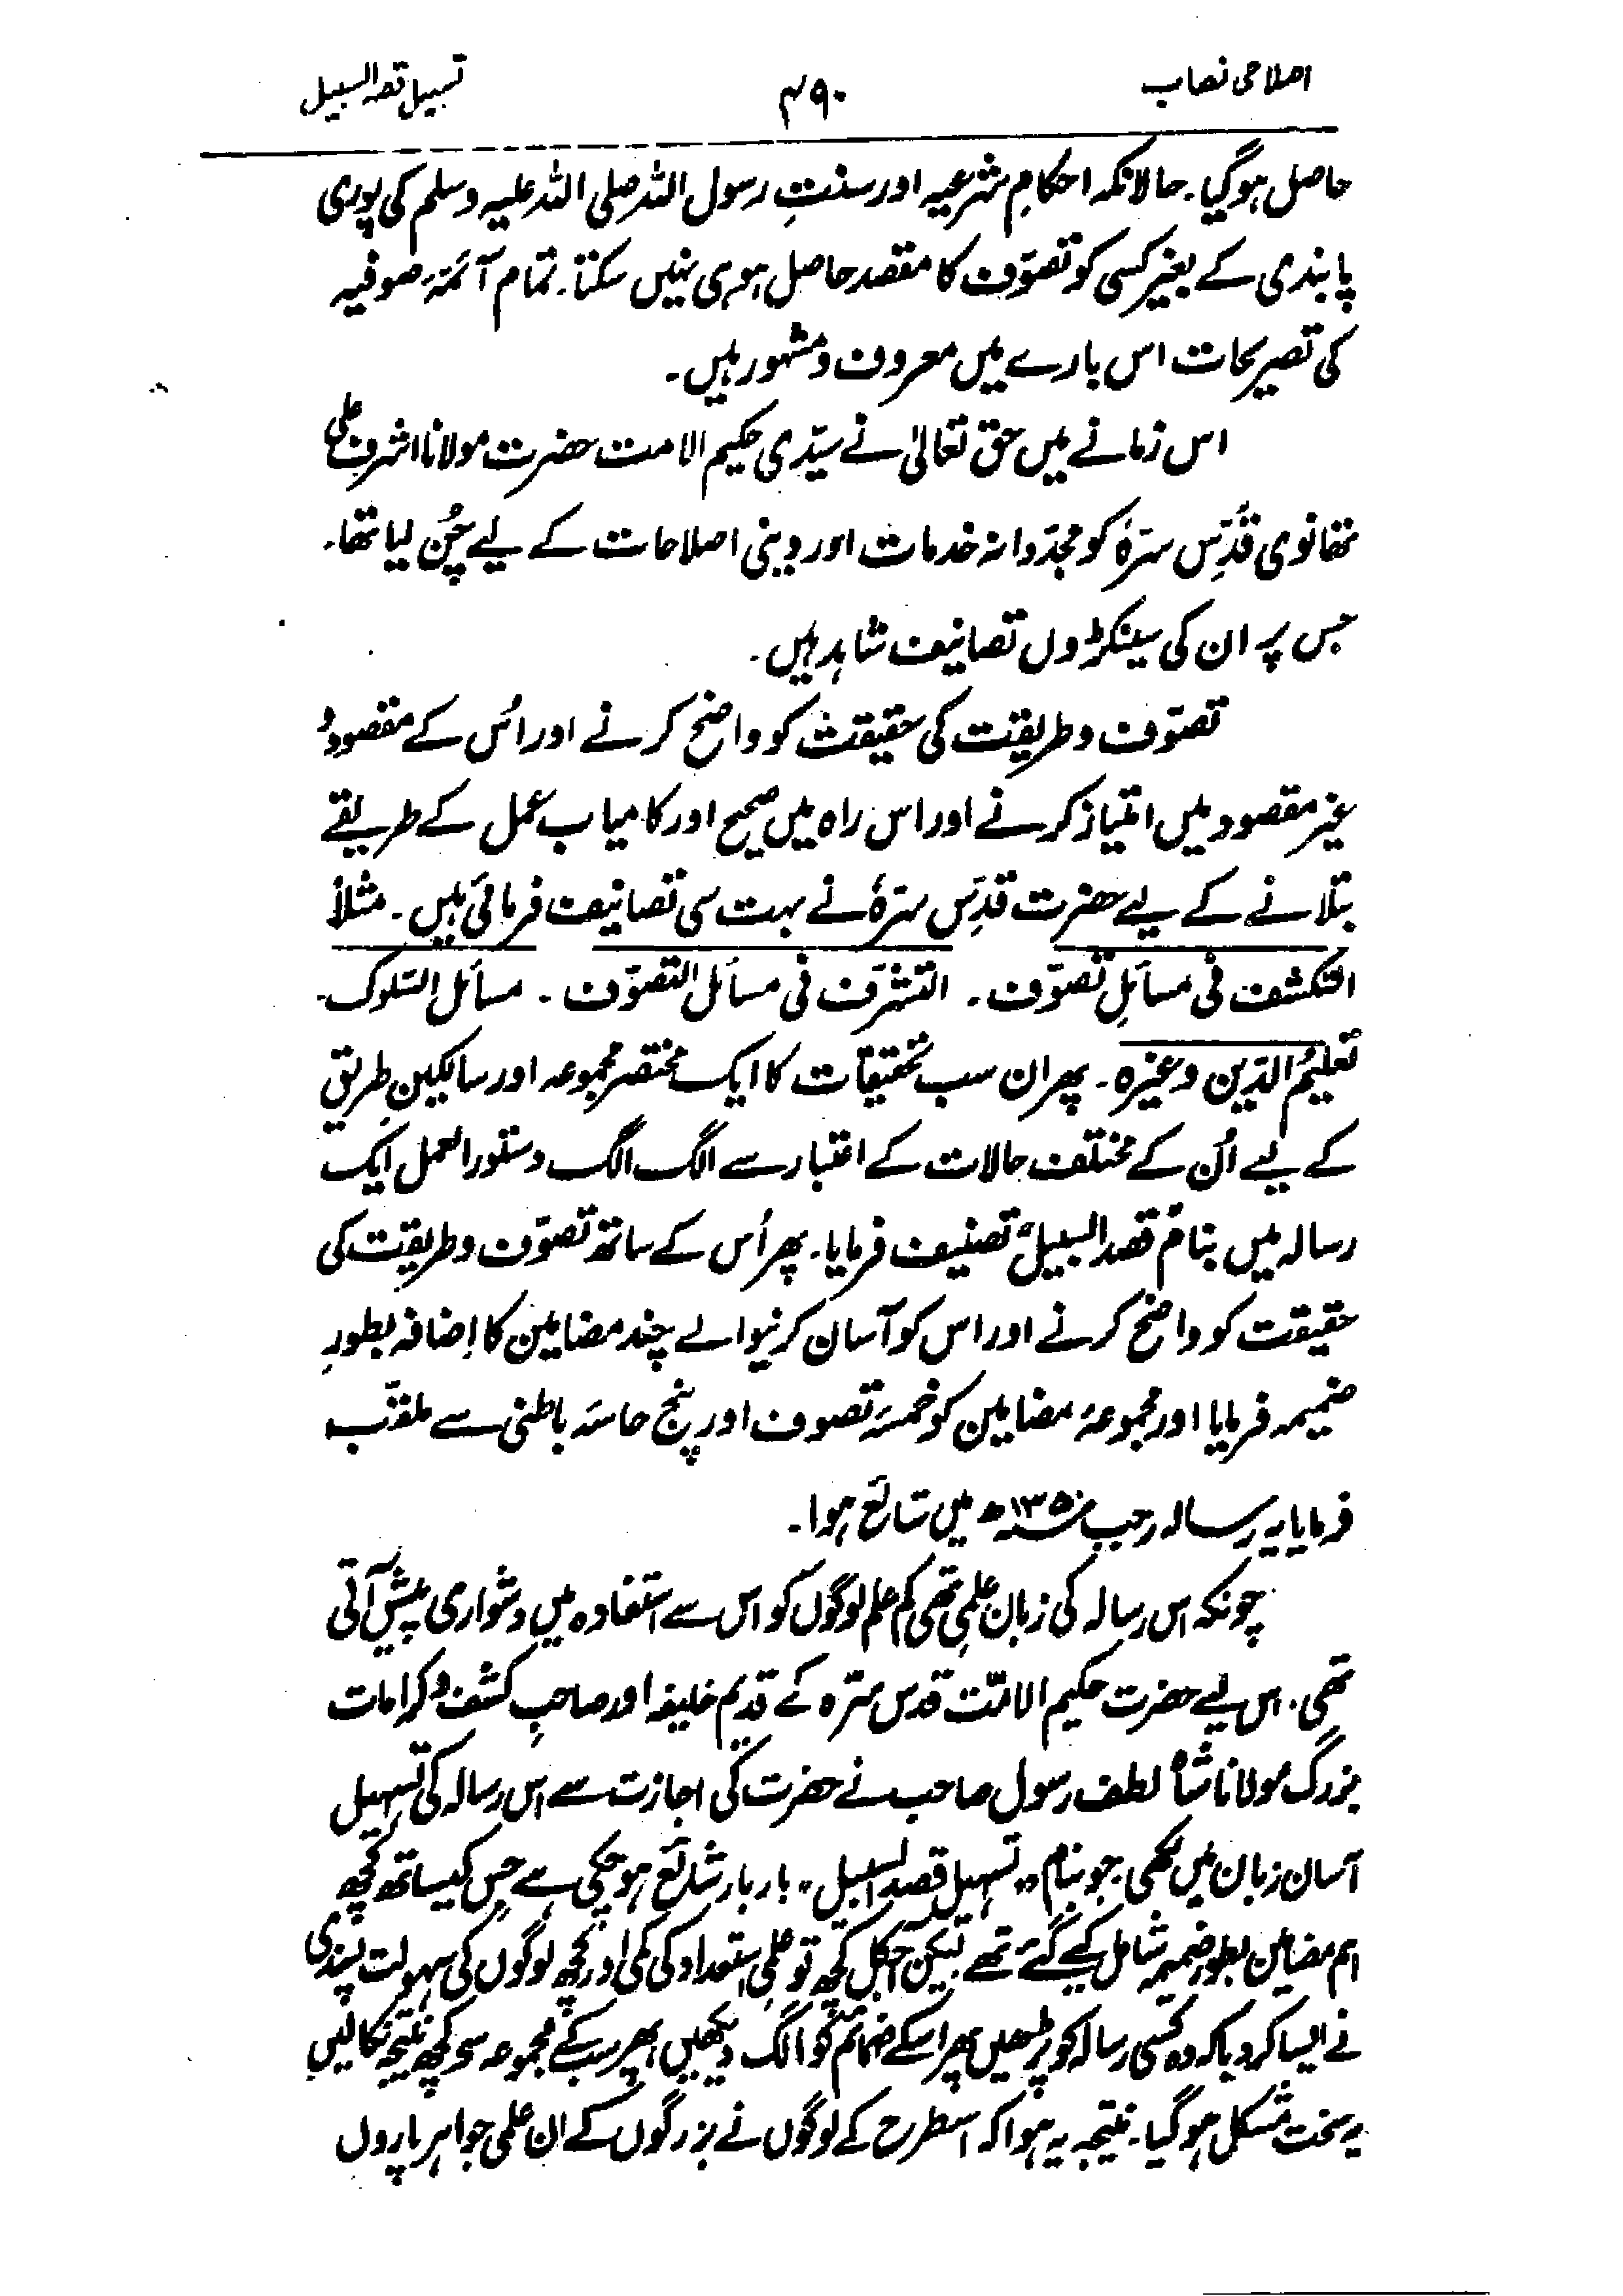 اصلاحی نصاب ۴۹۰ تسہیل قصد السبیل
حاصل ہوگیا۔ حالانکہ احکامِ شرعیہ اور سنتِ رسول اللہ صلی اللہ علیہ وسلم کی پوری
پابندی کے بغیر کسی کو تصوّف کا مقصد حاصل ہو ہی نہیں سکتا۔ تمام آئمۂ صوفیہ
کی تصریحات اس بارے میں معروف و مشہور ہیں۔
اس زمانے میں حق تعالیٰ نے سیّدی حکیم الامت حضرت مولانا اشرف علی
تھانوی قُدِّس سرّہٗ کو مجدّدانہ خدمات اور دینی اصلاحات کے لیے چُن لیا تھا۔
جس پر ان کی سینکڑوں تصانیف شاہد ہیں۔
تصوّف و طریقت کی حقیقت کو واضح کرنے اور اُس کے مقصود و
غیر مقصود میں امتیاز کرنے اور اس راہ میں صحیح اور کامیاب عمل کے طریقے
بتلانے کے لیے حضرت قدِّس سرّہٗ نے بہت سی تصانیف فرمائی ہیں۔ مثلاً
التکشف فی مسائلِ تصوّف۔ التشرّف فی مسائل التصوّف۔ مسائل السّلوک۔
تعلیمُ الدّین وغیرہ۔ پھر ان سب تحقیقات کا ایک مختصر مجموعہ اور سالکینِ طریق
کے لیے اُن کے مختلف حالات کے اعتبار سے الگ الگ دستور العمل ایک
رسالہ میں بنام "قصد السبیل" تصنیف فرمایا۔ پھر اُس کے ساتھ تصوّف و طریقت کی
حقیقت کو واضح کرنے اور اس کو آسان کرنیوالے چند مضامین کا اِضافہ بطورِ
ضمیمہ فرمایا اور مجموعۂ مضامین کو خمسۂ تصوف اور پنج حاسۂ باطنی سے ملقّب
فرمایا یہ رسالہ رجب ۱۳۵۰ھ میں شائع ہوا۔
چونکہ اس رسالہ کی زبان علمی تھی کم علم لوگوں کو اس سے استفادہ میں دشواری پیش آتی
تھی۔ اس لیے حضرت حکیم الامّت قدس سرّہ کے قدیم خلیفہ اور صاحبِ کشف و کرامات
بزرگ مولانا شاہ لطف رسول صاحب نے حضرت کی اجازت سے اس رسالہ کی تسہیل
آسان زبان میں لکھی۔ جو بنام "تسہیل قصد السبیل" بار بار شائع ہوچکی ہے جس کیساتھ کچھ
اہم مضامین بطور ضمیمہ شامل کیے گئے تھے لیکن آجکل کچھ تو علمی استعداد کی کمی اور کچھ لوگوں کی سہولت پسندی
نے ایسا کردیا کہ وہ کسی رسالہ کو پڑھیں پھر اسکے ضمائم کو الگ دیکھیں پھر سب کے مجموعہ سے کچھ نتیجہ نکالیں
یہ سخت مشکل ہوگیا۔ نتیجہ یہ ہوا کہ اسطرح کے لوگوں نے بزرگوں کے ان علمی جواہر پاروں